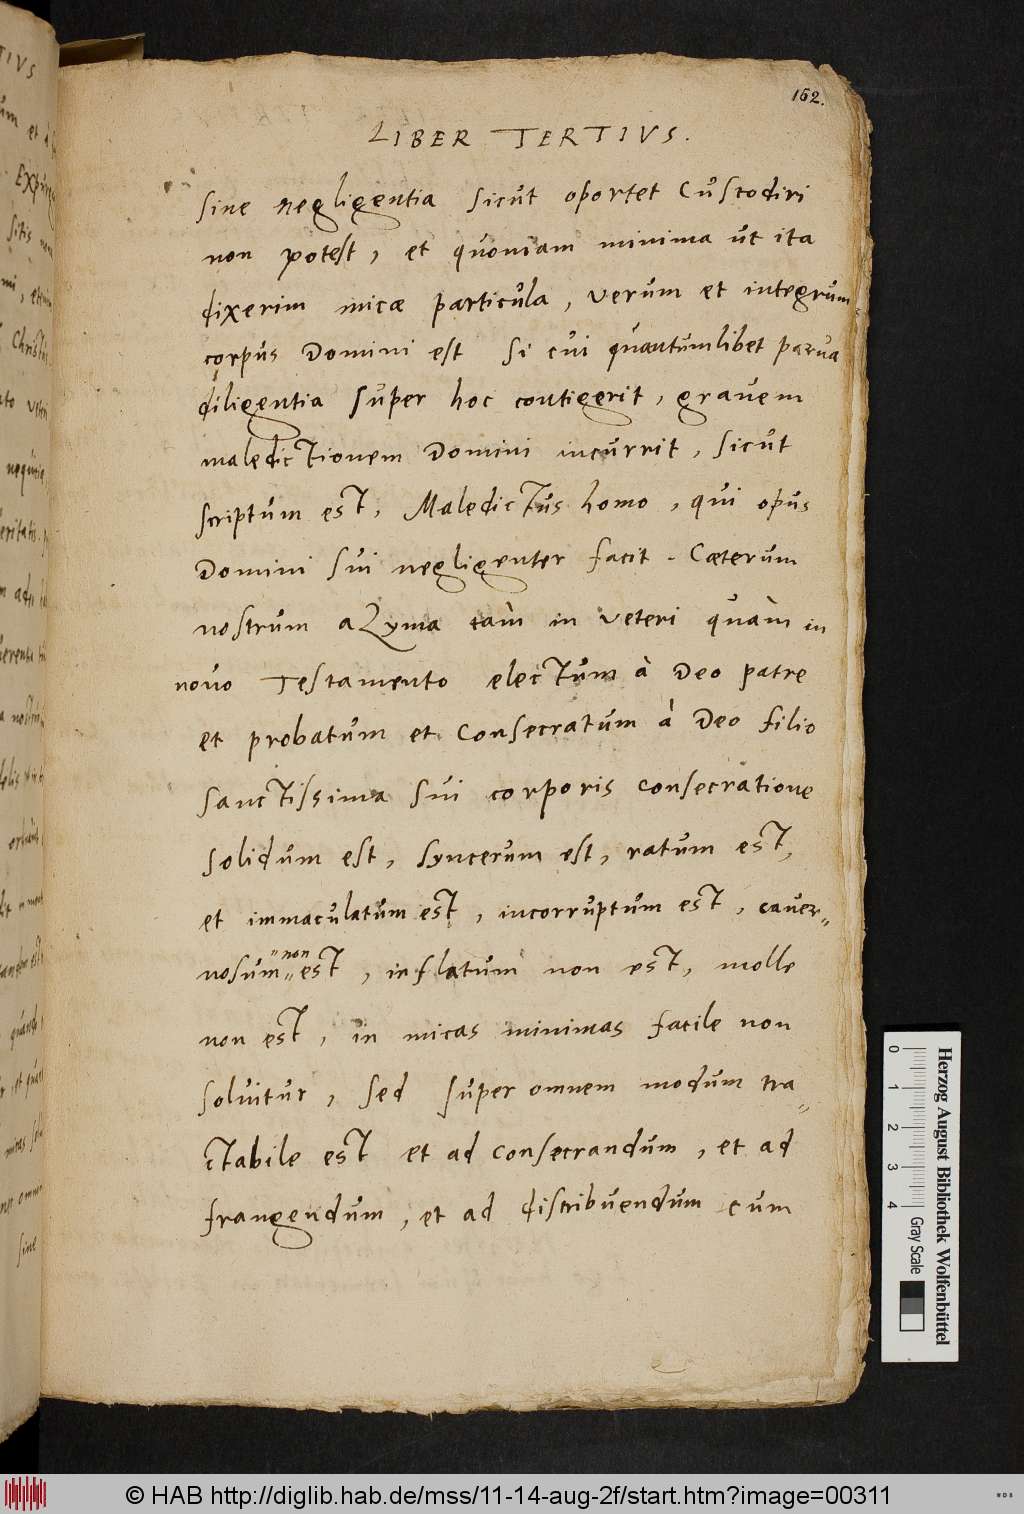 152.
LIBER TERTIVS.
sine negligentia sicut oportet custodiri
non potest, et quoniam minima ut ita
dixerim micæ particula, verum et integrum
corpus Domini est si cui quantumlibet parva
diligentia super hoc contigerit, gravem
maledictionem Domini incurrit, sicut
scriptum est, Maledictus homo, qui opus
Domini sui negligenter facit. Cæterum
nostrum aZyma tàm in veteri quàm in
novo Testamento electum à Deo patre
et probatum et consecratum à Deo filio
sanctissima sui corporis consecratione
solidum est, syncerum est, ratum est,
et immaculatum est, incorruptum est, caver„
nosum „non„ est, inflatum non est, molle
non est, in micas minimas facile non
solvitur, sed super omnem modum tra„
ctabile est et ad consecrandum, et ad
frangendum, et ad distribuendum cum
Herzog August Bibliothek Wolfenbüttel
0 1 2 3 4 Gray Scale
© HAB http://diglib.hab.de/mss/11-14-aug-2f/start.htm?image=00311